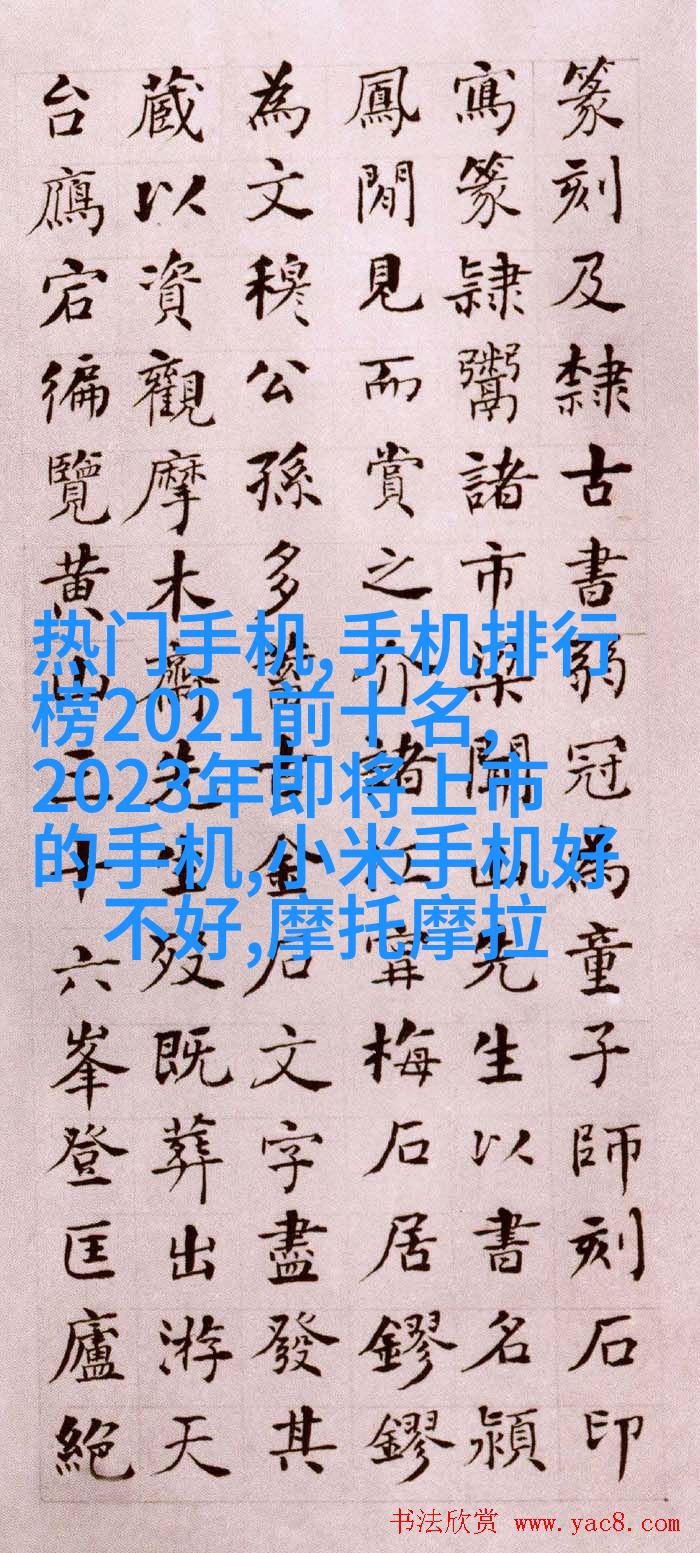 篆刻及隸古書弱冠為童子師刻石印
寫篆隸鬻諸市梁聞山先生以書名潁
鳳閒見而賞之介諸江寧梅石居鏐鏐
為文穆公孫多蓄古金石文字盡發其
藏以資觀摩木齋先生歿既葬出游天
台鴈宕徧覽黃山三十六峯登匡廬絕
热门手机,手机排行
榜2021前十名,
2023年即将上市
的手机,小米手机好
不好,摩托摩拉
书法欣赏 www.yac8.com